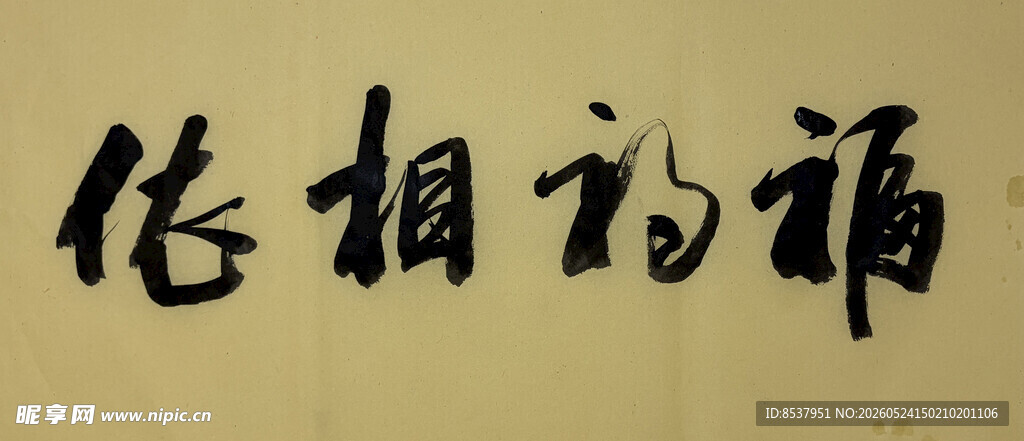 福禍相依
昵享网 www.nipic.cn
ID:8537951 NO:20260524150210201106